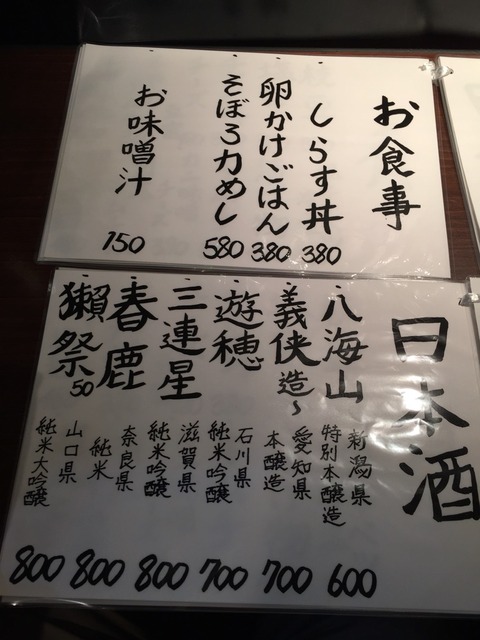 お食事
しらす丼 380
卵かけごはん 380
そぼろ力めし 580
お味噌汁 150
日本酒
八海山 新潟県 特別本醸造 600
義侠造〜 愛知県 本醸造 700
遊穂 石川県 純米吟醸 700
三連星 滋賀県 純米吟醸 800
春鹿 奈良県 純米 800
獺祭50 山口県 純米大吟醸 800